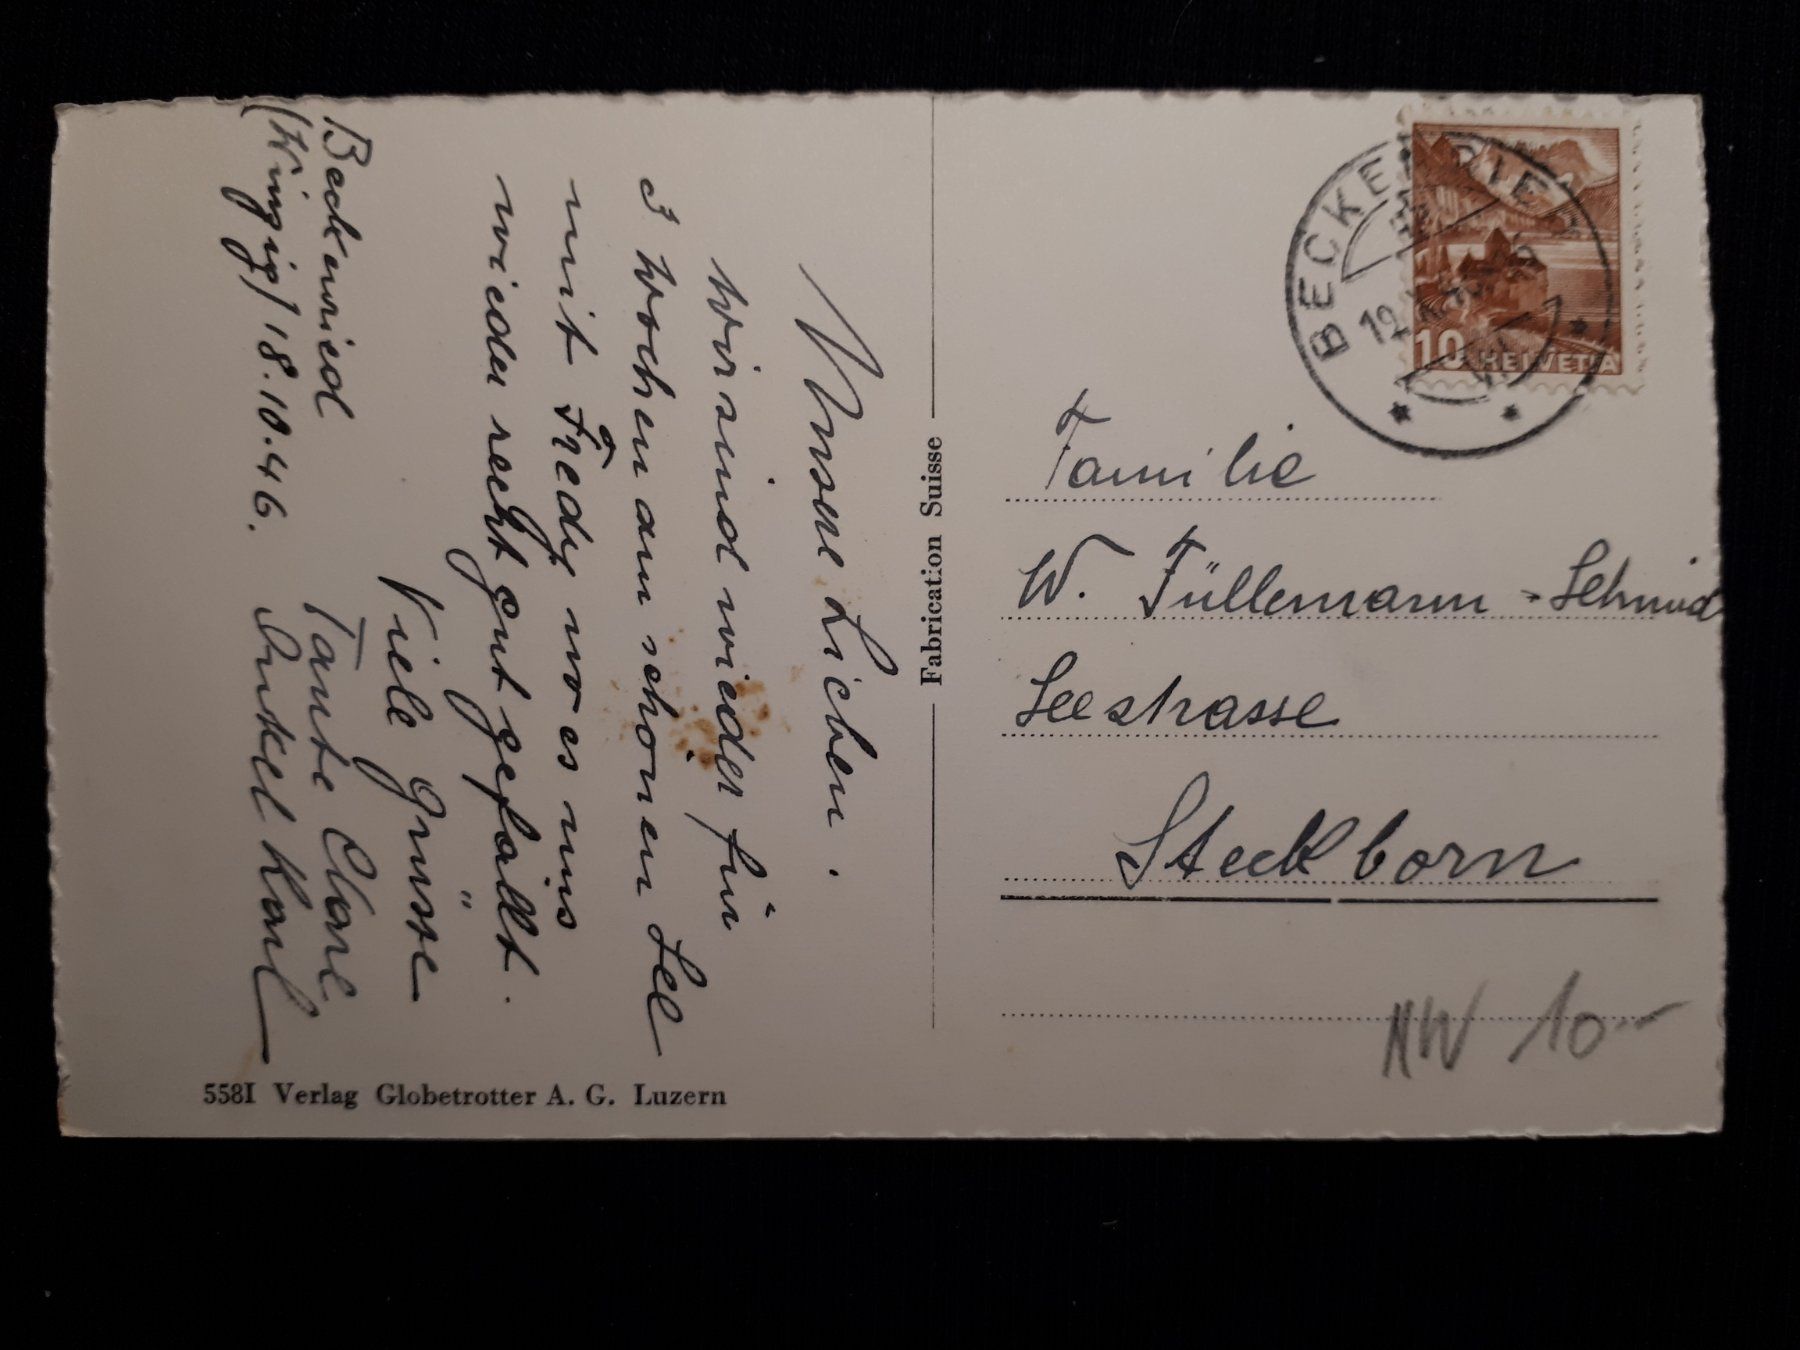 Unsere Lieben.
Wir sind wieder für
3 Wochen am schönen See
mit Fredy wo es uns
wieder recht gut gefällt.
Viele Grüsse
Tante Clare
Onkel Karl
Beckenried
18.10.46.
Fabrication Suisse
5581 Verlag Globetrotter A. G. Luzern
BECKENRIED
10 HELVETIA
Familie
W. Füllemann-Schmid
Seestrasse
Steckborn
NW 10.-